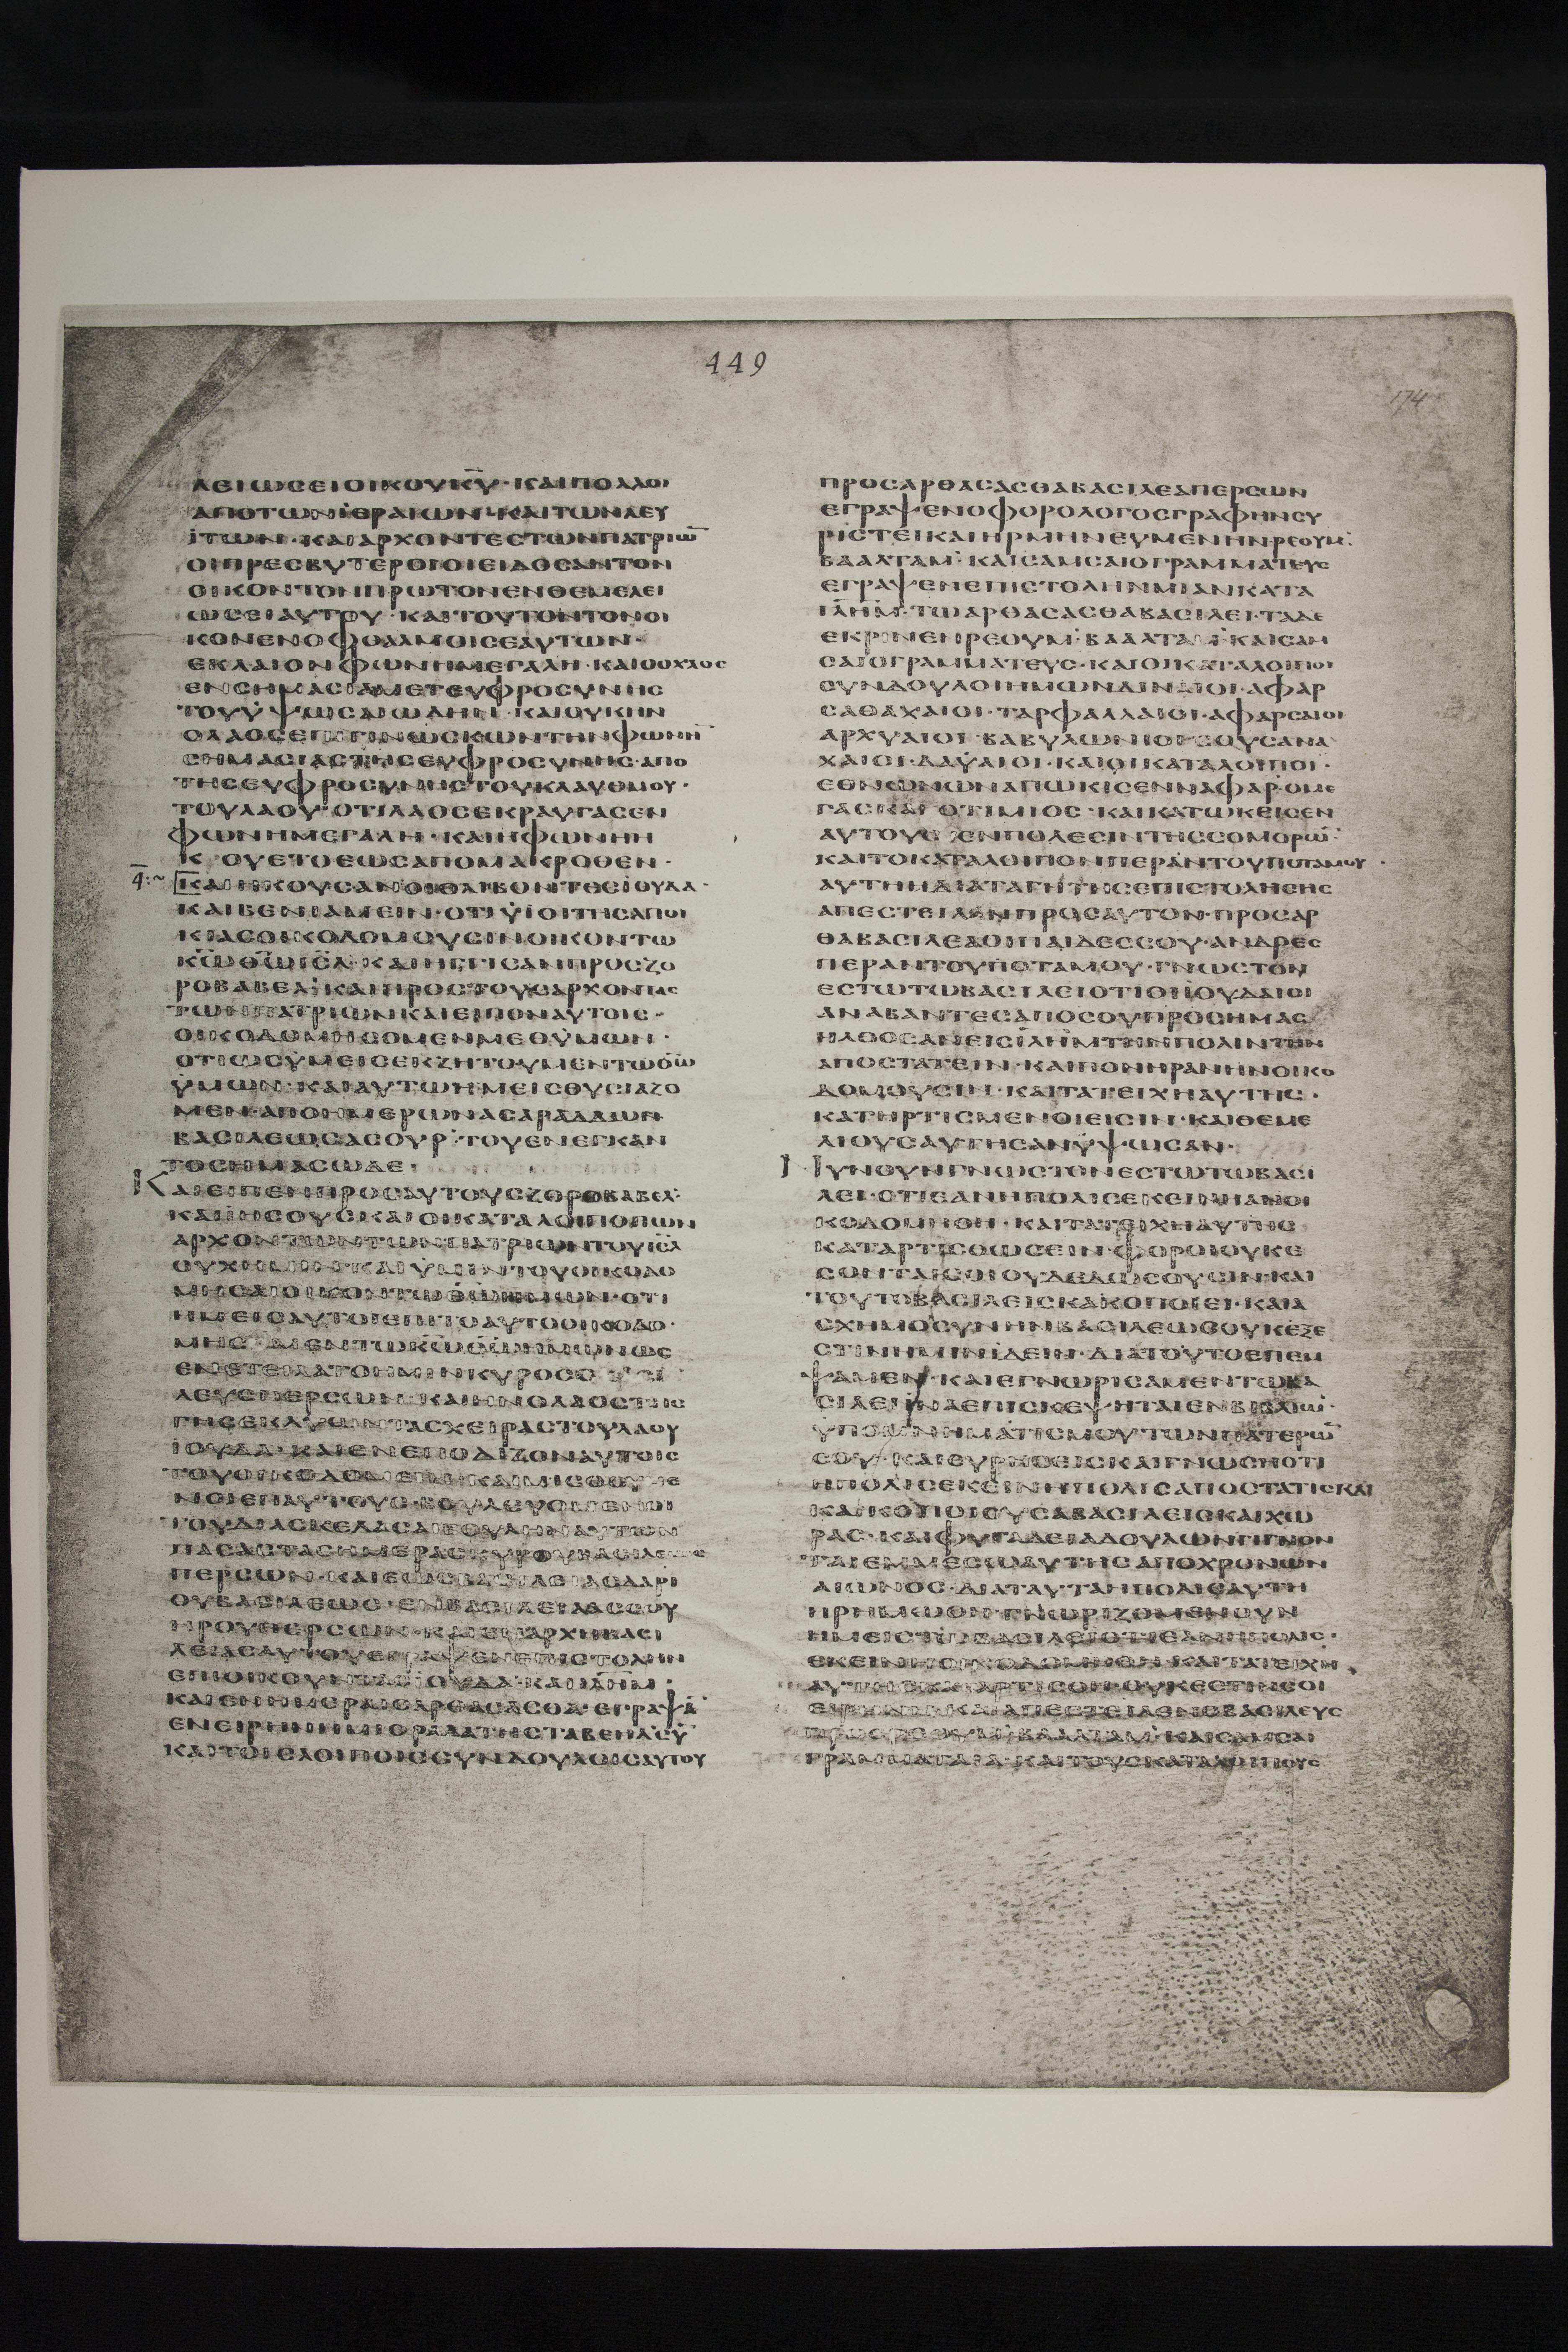 449
174
ΛΕΙΩСΕΙΟΙΚΟΥΚΥ · ΚΑΙΠΟΛΛΟΙ
ΑΠΟΤΩΝΙΕΡΑΙΩΝ · ΚΑΙΤΩΝΛΕΥ
ΙΤΩΝ · ΚΑΙΑΡΧΟΝΤΕСΤΩΝΠΑΤΡΙΩ̅
ΟΙΠΡΕСΒΥΤΕΡΟΙΟΙΕΙΔΟСΑΝΤΟΝ
ΟΙΚΟΝΤΟΝΠΡΩΤΟΝΕΝΘΕΜΕΛΕΙ
ΩСΕΙΑΥΤΟΥ · ΚΑΙΤΟΥΤΟΝΤΟΝΟΙ
ΚΟΝΕΝΟΦΘΑΛΜΟΙСΕΑΥΤΩΝ ·
ΕΚΛΑΙΟΝΦΩΝΗΜΕΓΑΛΗ · ΚΑΙΟΟΧΛΟС
ΕΝСΗΜΑСΙΑΜΕΤΕΥΦΡΟСΥΝΗС
ΤΟΥΥΨΩСΑΙΩΔΗΝ · ΚΑΙΟΥΚΗΝ
ΟΛΑΟСΕΠΙΓΙΝΩСΚΩΝΤΗΝΦΩΝΗ̅
СΗΜΑСΙΑСΤΗСΕΥΦΡΟСΥΝΗС · ΑΠΟ
ΤΗСΕΥΦΡΟСΥΝΗСΤΟΥΚΛΑΥΘΜΟΥ ·
ΤΟΥΛΑΟΥ · ΟΤΙΛΑΟСΕΚΡΑΥΓΑСΕΝ
ΦΩΝΗΜΕΓΑΛΗ · ΚΑΙΗΦΩΝΗΗ
Κ ΟΥΕΤΟΕΩСΑΠΟΜΑΚΡΟΘΕΝ ·
ΚΑΙΗΚΟΥСΑΝΟΙΘΛΙΒΟΝΤΕСΙΟΥΔΑ ·
ΚΑΙΒΕΝΙΑΜΕΙΝ · ΟΤΙΥΙΟΙΤΗСΑΠΟΙ
ΚΙΑСΟΙΚΟΔΟΜΟΥСΙΝΟΙΚΟΝΤΩ
ΚΩ̅ΘΩ̅ΙСΛ · ΚΑΙΗΓΓΙСΑΝΠΡΟСΖΟ
ΡΟΒΑΒΕΛ · ΚΑΙΠΡΟСΤΟΥСΑΡΧΟΝΤΑС
ΤΩΝΠΑΤΡΙΩΝΚΑΙΕΙΠΟΝΑΥΤΟΙС ·
ΟΙΚΟΔΟΜΗСΟΜΕΝΜΕΘΥΜΩΝ ·
ΟΤΙΩСΥΜΕΙСΕΚΖΗΤΟΥΜΕΝΤΩΘΩ̅
ΥΜΩΝ · ΚΑΙΑΥΤΩΗΜΕΙСΘΥСΙΑΖΟ
ΜΕΝ · ΑΠΟΗΜΕΡΩΝΑСΑΡΑΔΔΩΝ
ΒΑСΙΛΕΩСΑСΟΥΡ · ΤΟΥΕΝΕΓΚΑΝ
ΤΟСΗΜΑСΩΔΕ ·
ΚΑΙΕΙΠΕΝΠΡΟСΑΥΤΟΥСΖΟΡΟΒΑΒΕΛ ·
ΚΑΙΙΗСΟΥСΚΑΙΟΙΚΑΤΑΛΟΙΠΟΙΤΩΝ
ΑΡΧΟΝΤΩΝΤΩΝΠΑΤΡΙΩΝΤΟΥΙСΛ
ΟΥΧΗΜΙΝ · ΚΑΙΥΜΙΝΤΟΥΟΙΚΟΔΟ
ΜΗСΑΙΟΙΚΟΝΤΩΘΩ̅ΗΜΩΝ · ΟΤΙ
ΗΜΕΙСΑΥΤΟΙΕΠΙΤΟΑΥΤΟΟΙΚΟΔΟ ·
ΜΗС ΜΕΝΤΩΚΩ̅ΘΩ̅ΗΜΩΝΩС
ΕΝΕΤΕΙΛΑΤΟΗΜΙΝΚΥΡΟСΟ
ΛΕΥСΠΕΡСΩΝ · ΚΑΙΗΝΟΛΑΟСΤΗС
ΓΗСΕΚΛΥΩΝΤΑСΧΕΙΡΑСΤΟΥΛΑΟΥ
ΙΟΥΔΑ · ΚΑΙΕΝΕΠΟΔΙΖΟΝΑΥΤΟΙС
ΤΟΥΟΙΚΟΔΟΜΕΙΝ · ΚΑΙΜΙСΘΟΥΜΕ
ΝΟΙΕΠΑΥΤΟΥС · ΒΟΥΛΕΥΟΜΕΝΟΙ
ΤΟΥΔΙΑСΚΕΔΑСΑΙΒΟΥΛΗΝΑΥΤΩΝ
ΠΑСΑСΤΑСΗΜΕΡΑСΚΥΡΟΥΒΑСΙΛΕΩС
ΠΕΡСΩΝ · ΚΑΙΕΩСΒΑСΙΛΕΙΑСΔΑΡΙ
ΟΥΒΑСΙΛΕΩС · ΕΝΒΑСΙΛΕΙΑΑССΟΥ
ΗΡΟΥΠΕΡСΩΝ · ΚΑΙΕΝΑΡΧΗΒΑСΙ
ΛΕΙΑСΑΥΤΟΥΕΓΡΑΨΕΝΕΠΙСΤΟΛΗΝ
ΕΠΙΟΙΚΟΥΝΤΑСΙΟΥΔΑ · ΚΑΙΙΛΗΜ ·
ΚΑΙΕΝΗΜΕΡΑΙСΑΡΘΑСΑСΘΑ · ΕΓΡΑΨΑ̅
ΕΝΕΙΡΗΝΗΜΙΘΡΑΔΑΤΗСΤΑΒΕΗΛСΥ̅
ΚΑΙΤΟΙСΛΟΙΠΟΙССΥΝΔΟΥΛΟΙСΑΥΤΟΥ
ΠΡΟСΑΡΘΑСΑСΘΑΒΑСΙΛΕΑΠΕΡСΩΝ
ΕΓΡΑΨΕΝΟΦΟΡΟΛΟΓΟСΓΡΑΦΗΝСΥ
ΡΙСΤΕΙΚΑΙΗΡΜΗΝΕΥΜΕΝΗΝ · ΡΕΟΥΜ ·
ΒΑΑΛΤΑΜ · ΚΑΙСΑΜСΑΙΟΓΡΑΜΜΑΤΕΥС
ΕΓΡΑΨΕΝΕΠΙСΤΟΛΗΝΜΙΑΝΚΑΤΑ
ΙΛΗΜ · ΤΩΑΡΘΑСΑСΘΑΒΑСΙΛΕΙ · ΤΑΔΕ
ΕΚΡΙΝΕΝΡΕΟΥΜ · ΒΑΑΛΤΑΜ · ΚΑΙСΑΜ
СΑΙΟΓΡΑΜΜΑΤΕΥС · ΚΑΙΟΙΚΑΤΑΛΟΙΠΟΙ
СΥΝΔΟΥΛΟΙΗΜΩΝΔΙΝΑΙΟΙ · ΑΦΑΡ
СΑΘΑΧΑΙΟΙ · ΤΑΡΦΑΛΛΑΙΟΙ · ΑΦΑΡСΑΙΟΙ
ΑΡΧΥΑΙΟΙ · ΒΑΒΥΛΩΝΙΟΙ · СΟΥСΑΝΑ
ΧΑΙΟΙ · ΔΑΥΑΙΟΙ · ΚΑΙΟΙΚΑΤΑΛΟΙΠΟΙ ·
ΕΘΝΩΝΩΝΑΠΩΚΙСΕΝΝΑΦΑΡ · ΟΜΕ
ΓΑСΚΑΙ ΟΤΙΜΙΟС · ΚΑΙΚΑΤΩΚΕΙСΕΝ
ΑΥΤΟΥС ΕΝΠΟΛΕСΙΝΤΗССΟΜΟΡΩ̅ ·
ΚΑΙΤΟΚΑΤΑΛΟΙΠΟΝΠΕΡΑΝΤΟΥΠΟΤΑΜΟΥ ·
ΑΥΤΗΗΔΙΑΤΑΓΗΤΗСΕΠΙСΤΟΛΗСΗС
ΑΠΕСΤΕΙΛΑΝΠΡΟСΑΥΤΟΝ · ΠΡΟСΑΡ
ΘΑΒΑСΙΛΕΑΟΙΠΑΙΔΕССΟΥ · ΑΝΔΡΕС
ΠΕΡΑΝΤΟΥΠΟΤΑΜΟΥ · ΓΝΩСΤΟΝ
ΕСΤΩΤΩΒΑСΙΛΕΙΟΤΙΟΙΙΟΥΔΑΙΟΙ
ΑΝΑΒΑΝΤΕСΑΠΟСΟΥΠΡΟСΗΜΑС
ΗΛΘΟСΑΝΕΙСΙΛΗΜΤΗΝΠΟΛΙΝΤΗΝ
ΑΠΟСΤΑΤΕΙΝ · ΚΑΙΠΟΝΗΡΑΝΗΝΟΙΚΟ
ΔΟΜΟΥСΙΝ · ΚΑΙΤΑΤΕΙΧΗΑΥΤΗС ·
ΚΑΤΗΡΤΙСΜΕΝΟΙΕΙСΙΝ · ΚΑΙΘΕΜΕ
ΛΙΟΥСΑΥΤΗСΑΝΥΨΩСΑΝ ·
ΝΥΝΟΥΝΓΝΩСΤΟΝΕСΤΩΤΩΒΑСΙ
ΛΕΙ · ΟΤΙΕΑΝΗΠΟΛΙСΕΚΕΙΝΗΑΝΟΙ
ΚΟΔΟΜΗΘΗ · ΚΑΙΤΑΤΕΙΧΗΑΥΤΗС
ΚΑΤΑΡΤΙСΘΩСΕΙΝ · ΦΟΡΟΙΟΥΚΕ
СΟΝΤΑΙСΟΙΟΥΔΕΔΩСΟΥСΙΝ · ΚΑΙ
ΤΟΥΤΟΒΑСΙΛΕΙСΚΑΚΟΠΟΙΕΙ · ΚΑΙΑ
СΧΗΜΟСΥΝΗΝΒΑСΙΛΕΩСΟΥΚΕΞΕ
СΤΙΝΗΜΙΝΙΔΕΙΝ · ΔΙΑΤΟΥΤΟΕΠΕΜ
ΨΑΜΕΝ · ΚΑΙΕΓΝΩΡΙСΑΜΕΝΤΩΒΑ
СΙΛΕΙΙΝΑΕΠΙСΚΕΨΗΤΑΙΕΝΒΙΒΛΙΩΙ ·
ΥΠΟΜΝΗΜΑΤΙСΜΟΥΤΩΝΠΑΤΕΡΩ̅
СΟΥ · ΚΑΙΕΥΡΗСΕΙСΚΑΙΓΝΩСΗΟΤΙ
ΗΠΟΛΙСΕΚΕΙΝΗΠΟΛΙСΑΠΟСΤΑΤΙСΚΑΙ
ΚΑΚΟΠΟΙΟΥСΑΒΑСΙΛΕΙСΚΑΙΧΩ
ΡΑС · ΚΑΙΦΥΓΑΔΕΙΑΔΟΥΛΩΝΓΙΓΝΟΝ
ΤΑΙΕΜΜΕСΩΑΥΤΗСΑΠΟΧΡΟΝΩΝ
ΑΙΩΝΟС · ΔΙΑΤΑΥΤΑΗΠΟΛΙСΑΥΤΗ
ΗΡΗΜΩΘΗ · ΓΝΩΡΙΖΟΜΕΝΟΥΝ
ΗΜΕΙСΤΩΒΑСΙΛΕΙΟΤΙΕΑΝΗΠΟΛΙС ·
ΕΚΕΙΝΗΟΙΚΟΔΟΜΗΘΗ · ΚΑΙΤΑΤΕΙΧΗ
ΑΥΤΗСΚΑΤΑΡΤΙСΘΗΟΥΚΕСΤΙΝСΟΙ
ΕΙΡΗΝΗ · ΚΑΙΑΠΕСΤΕΙΛΕΝΟΒΑСΙΛΕΥС
ΠΡΟСΡΕΟΥΜ · ΒΑΑΛΤΑΜ · ΚΑΙСΑΜСΑΙ
ΓΡΑΜΜΑΤΑΙΑ · ΚΑΙΤΟΥСΚΑΤΑΛΟΙΠΟΥС